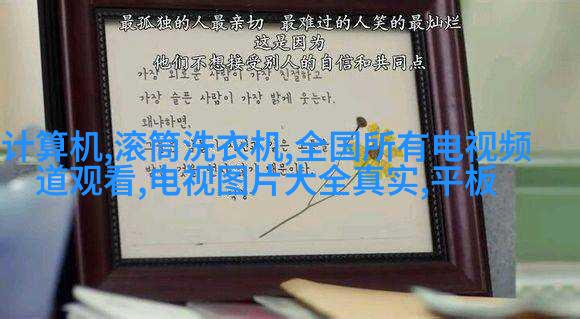 最孤独的人最亲切 最难过的人笑的最灿烂
这是因为
他们不想接受别人的自信和共同点
가장 외로운 사람이 가장 친절하고
가장 슬픈 사람이 가장 밝게 웃는다.
왜냐하면,
计算机,滚筒洗衣机,全国所有电视频
道观看,电视图片大全真实,平板